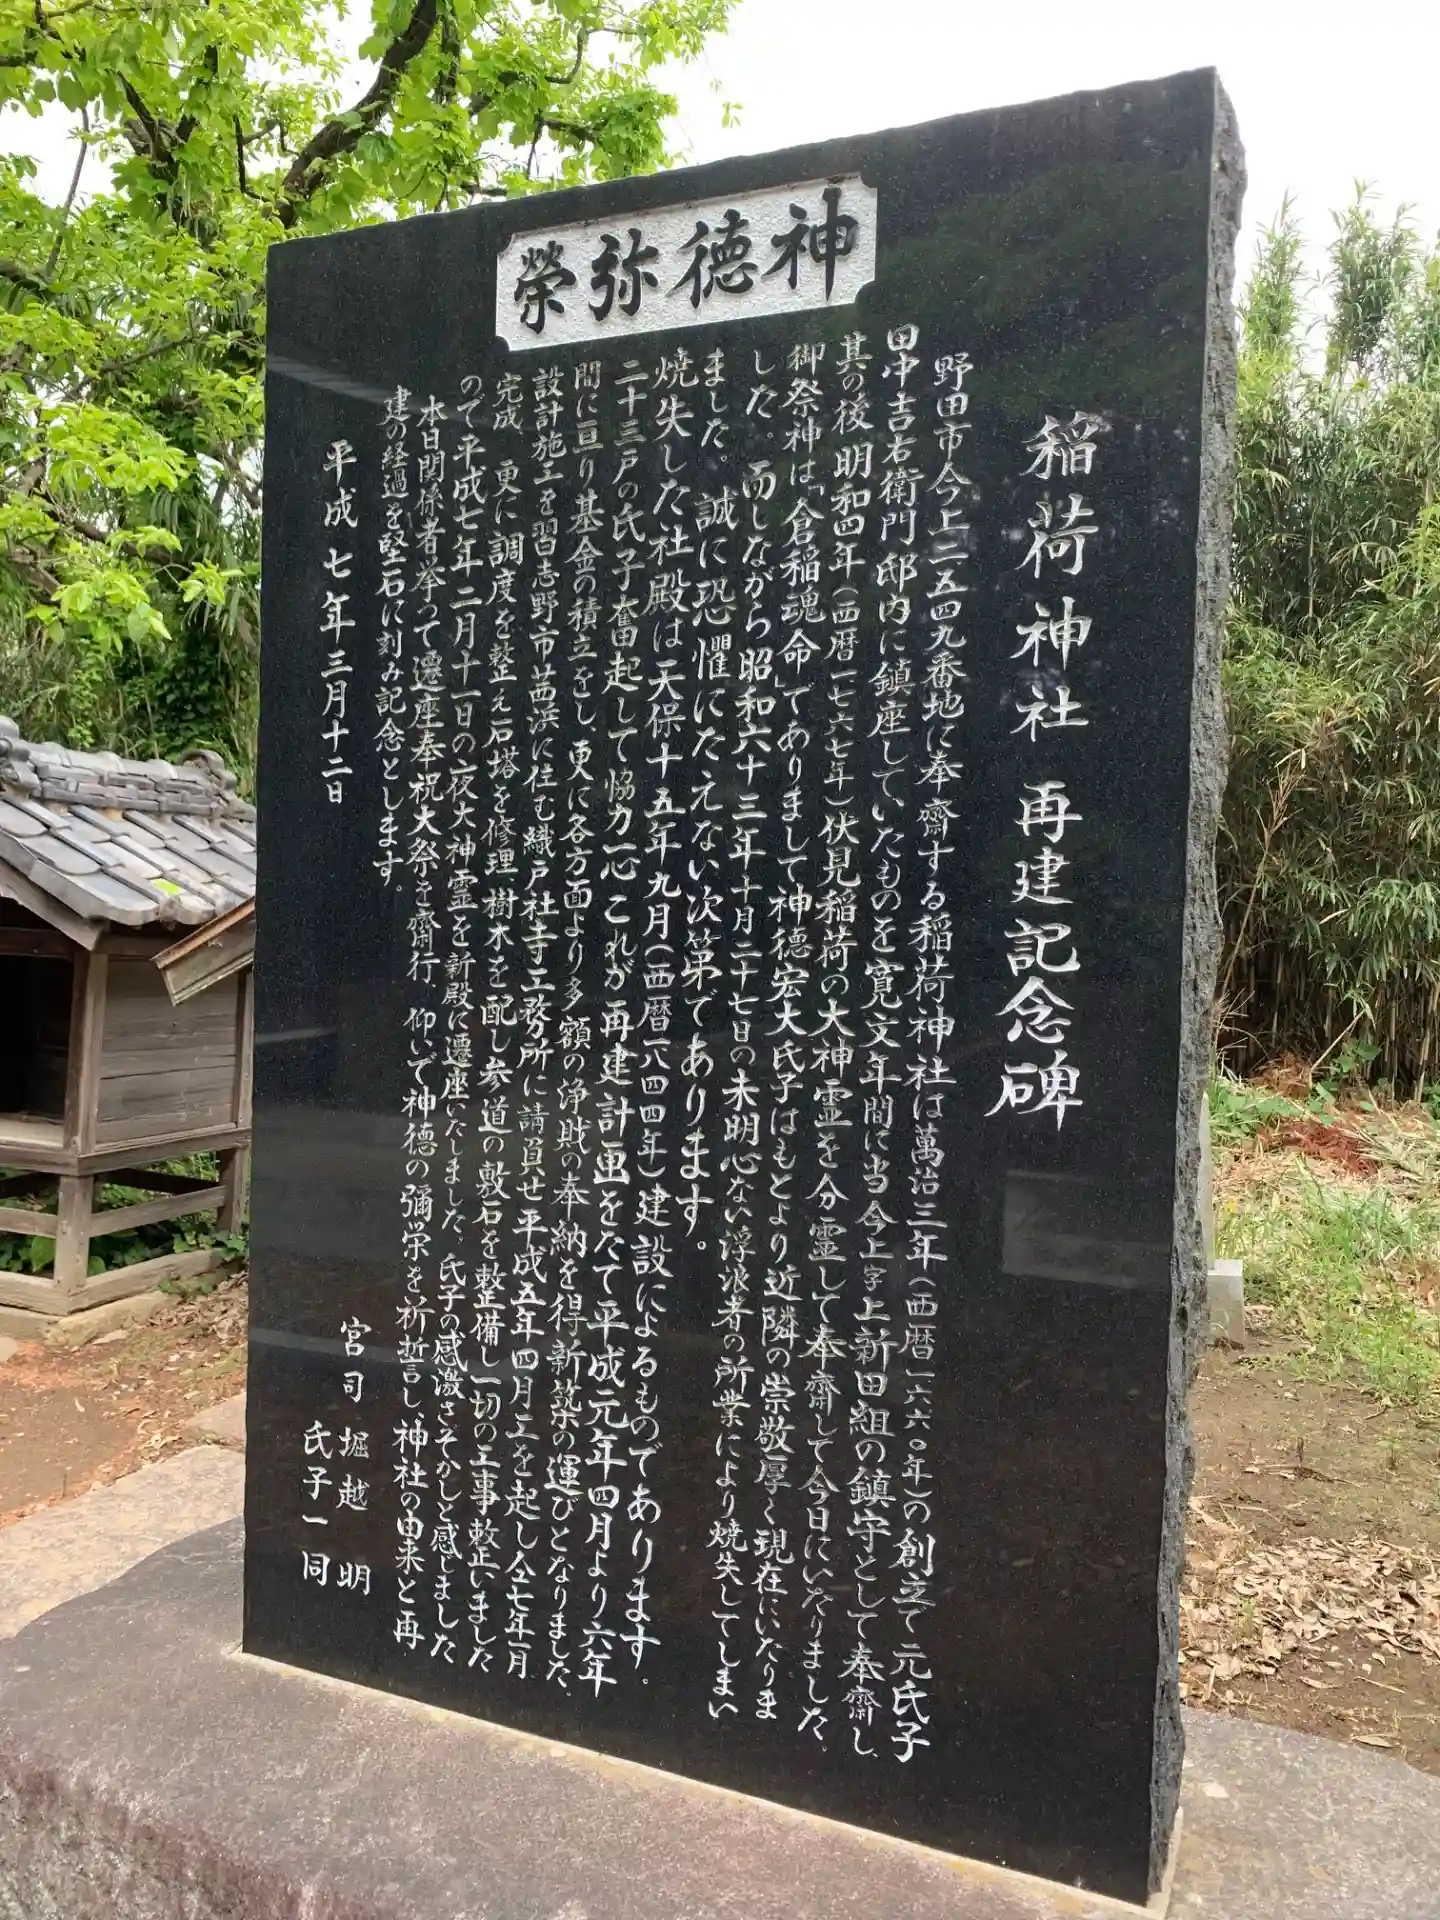 神徳弥榮
稲荷神社 再建記念碑
野田市今上二五四九番地に奉齋する稲荷神社は萬治三年(西暦一六六〇年)の創立で元氏子
田中吉右衛門邸内に鎮座していたものを寛文年間に当今上字上新田組の鎮守として奉齋し、
其の後明和四年(西暦一七六七年)伏見稲荷の大神霊を分霊して奉齋して今日にいたりました。
御祭神は「倉稲魂命」でありまして神徳宏大氏子はもとより近隣の崇敬厚く現在にいたりま
した。而しながら昭和六十三年十月二十七日の未明心ない浮浪者の所業により焼失してしまい
ました。誠に恐懼にたえない次第であります。
焼失した社殿は天保十五年九月(西暦一八四四年)建設によるものであります。
二十三戸の氏子奮起して協力一心これが再建計画をたて平成元年四月より六年
間に亘り基金の積立をし、更に各方面より多額の浄財の奉納を得新築の運びとなりました、
設計施工を習志野市茜浜に住む織戸社寺工務所に請負せ平成五年四月工を起し仝七年一月
完成 更に調度を整え石塔を修理樹木を配し参道の敷石を整備し一切の工事整いました
ので平成七年二月十一日の夜大神霊を新殿に遷座いたしました。氏子の感激さぞかしと感じました
本日関係者挙って遷座奉祝大祭を齋行、仰いで神徳の彌栄を祈誓し、神社の由来と再
建の経過を堅石に刻み記念とします。
平成七年三月十二日
宮司 堀越 明
氏子一同